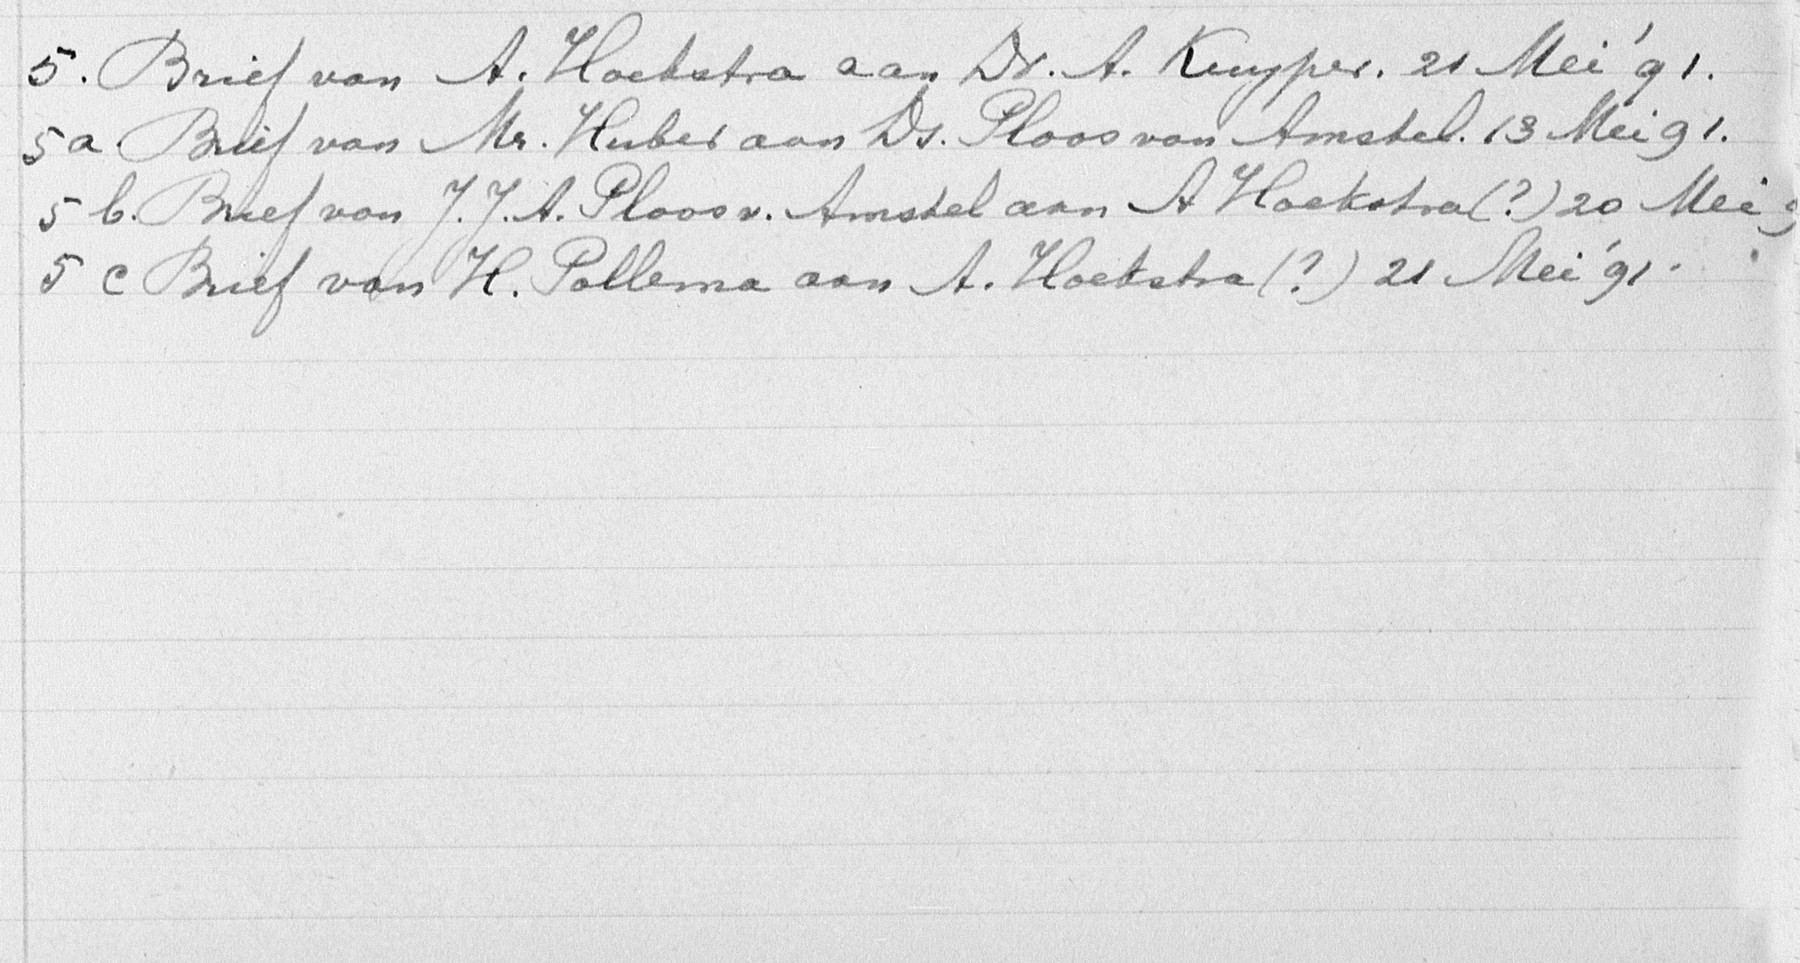 5. Brief van A. Hoekstra aan Dr. A. Kuyper. 21 Mei '91.
5a Brief van Mr. Huber aan Ds. Ploos van Amstel. 13 Mei 91.
5 b. Brief van J. J. A. Ploos v. Amstel aan A Hoekstra (?) 20 Mei 9
5 c Brief van H. Pollema aan A. Hoekstra (?) 21 Mei '91.